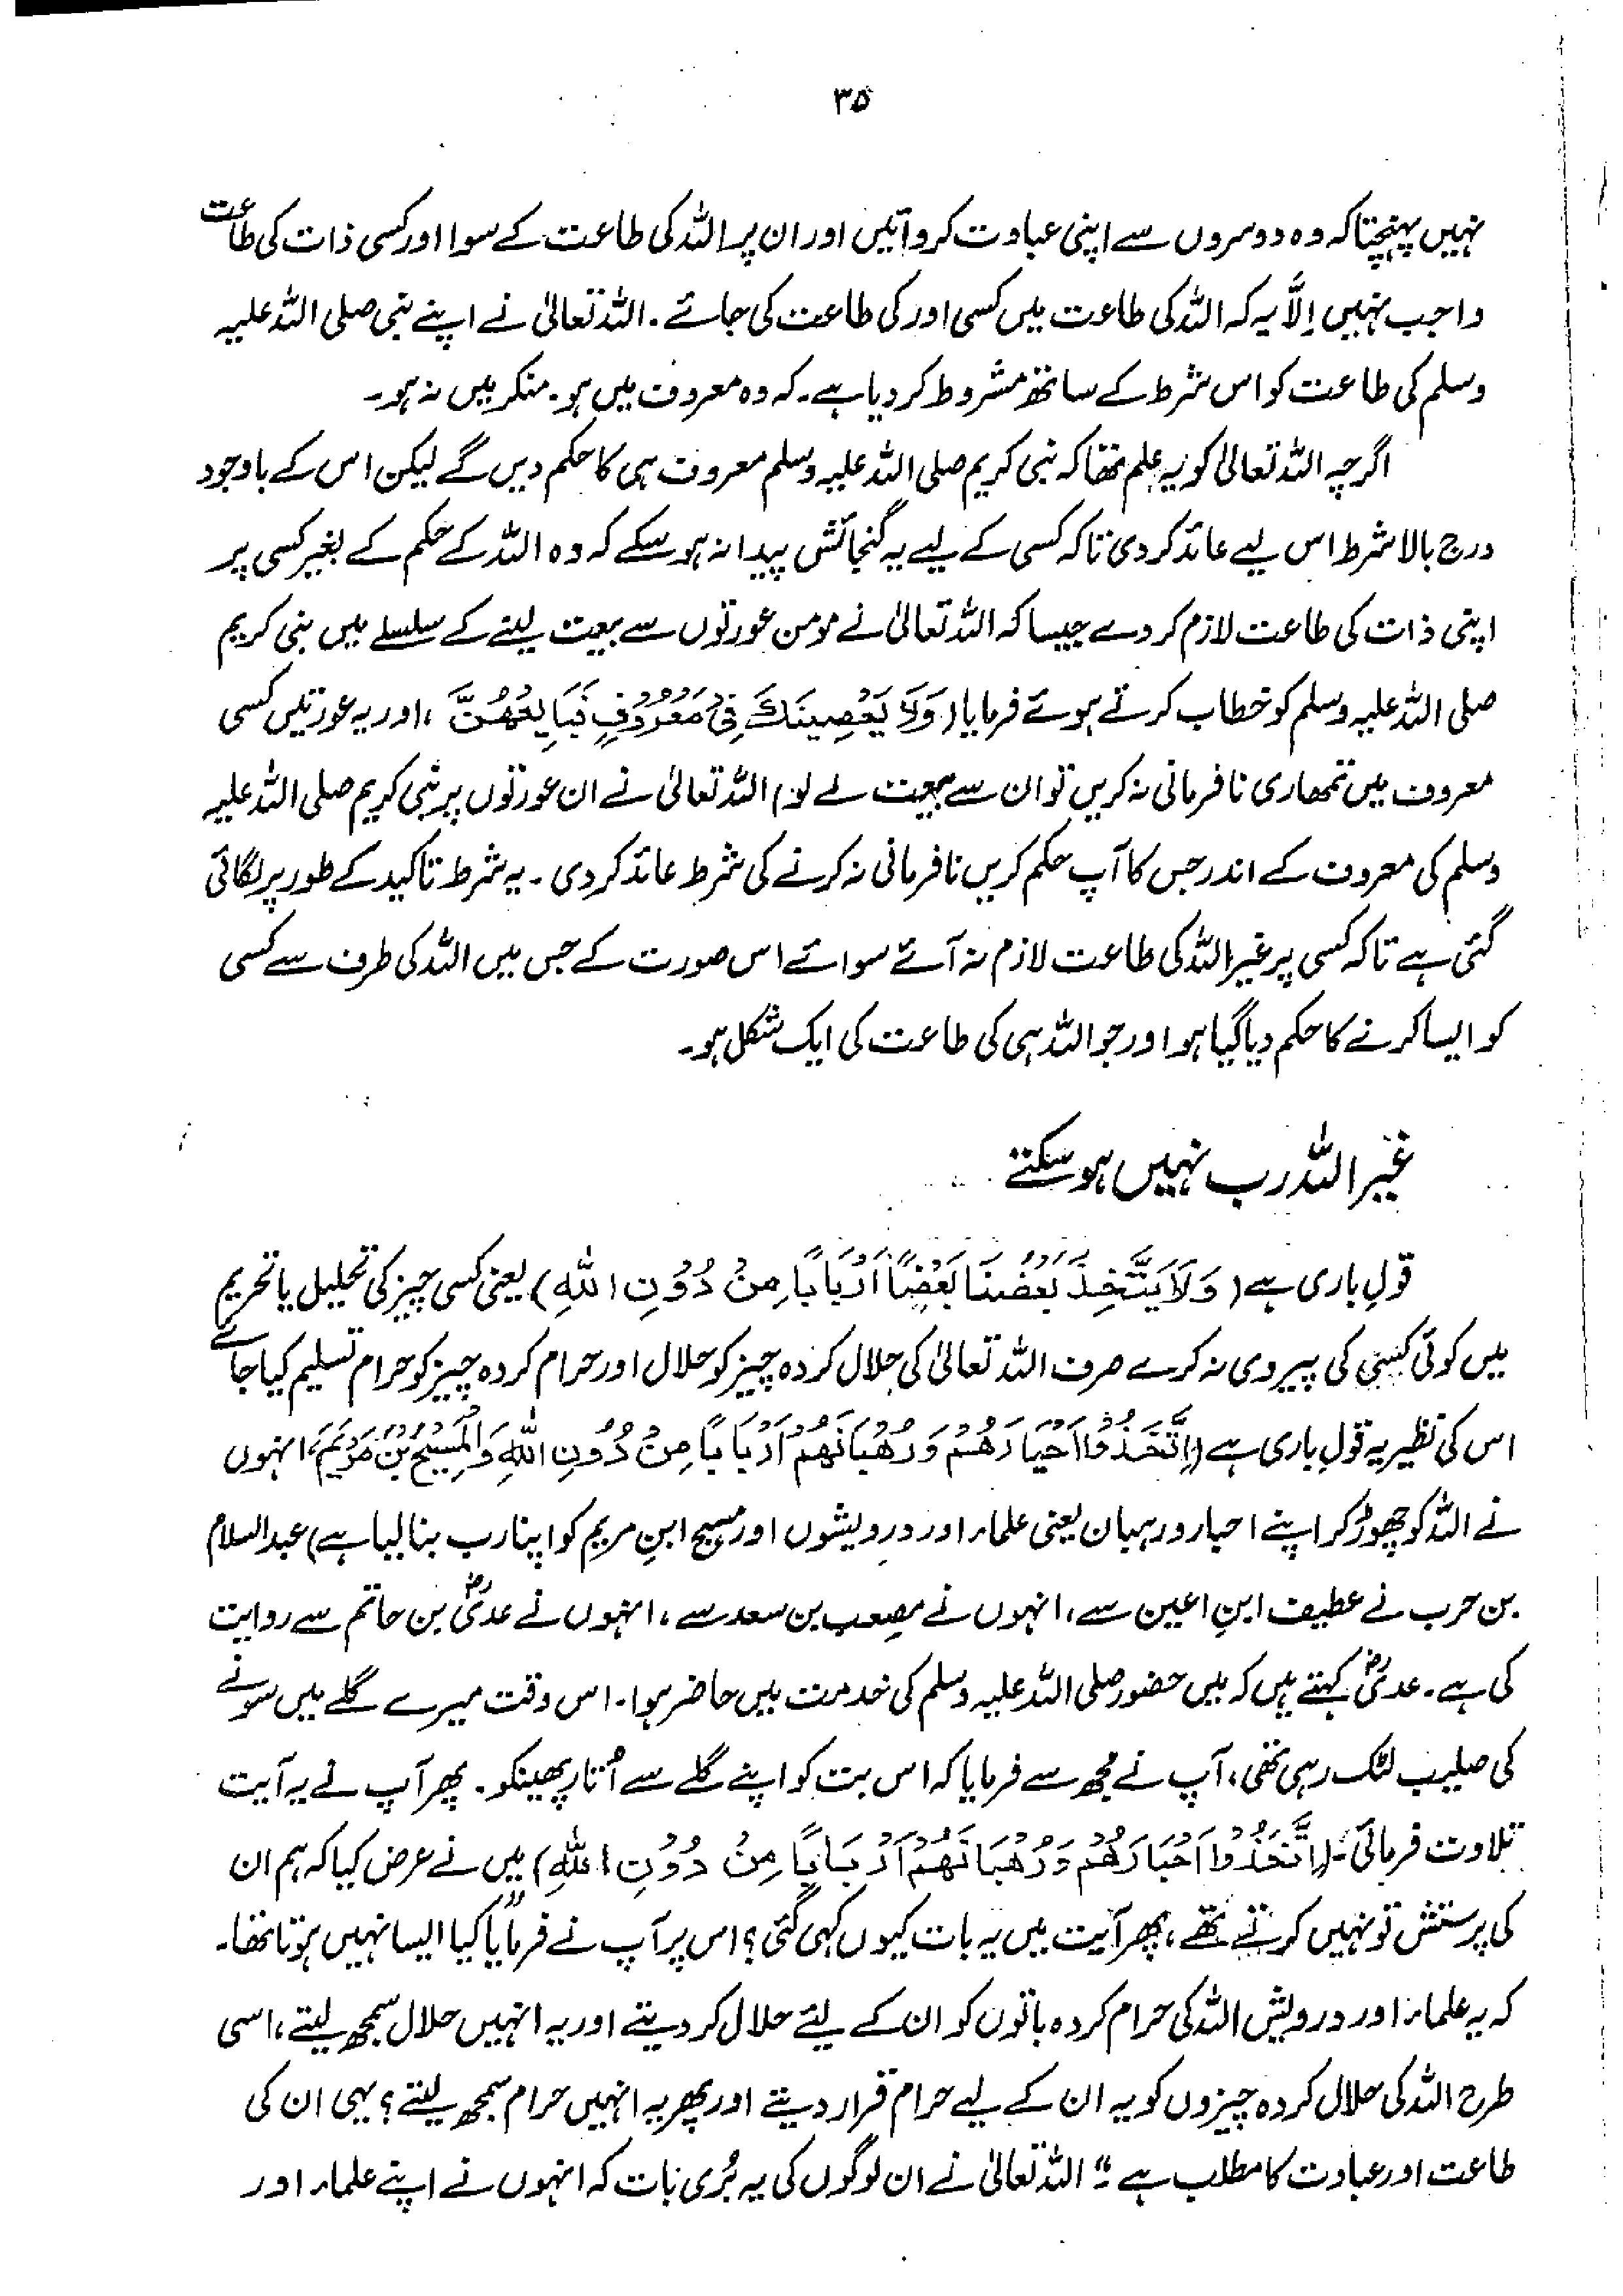 ۳۵
نہیں پہنچتا کہ وہ دوسروں سے اپنی عبادت کروائیں اور ان پر اللہ کی طاعت کے سوا اور کسی ذات کی طاعت
واجب نہیں اِلَّا یہ کہ اللہ کی طاعت میں کسی اور کی طاعت کی جائے۔ اللہ تعالیٰ نے اپنے نبی صلی اللہ علیہ
وسلم کی طاعت کو اس شرط کے ساتھ مشروط کر دیا ہے۔ کہ وہ معروف میں ہو۔ منکر میں نہ ہو۔
اگرچہ اللہ تعالیٰ کو یہ علم تھا کہ نبی کریم صلی اللہ علیہ وسلم معروف ہی کا حکم دیں گے لیکن اس کے باوجود
درج بالا شرط اس لیے عائد کر دی تاکہ کسی کے لیے یہ گنجائش پیدا نہ ہو سکے کہ وہ اللہ کے حکم کے بغیر کسی پر
اپنی ذات کی طاعت لازم کر دے جیسا کہ اللہ تعالیٰ نے مومن عورتوں سے بیعت لینے کے سلسلے میں نبی کریم
صلی اللہ علیہ وسلم کو خطاب کرتے ہوئے فرمایا (وَلَا يَعْصِينَكَ فِي مَعْرُوفٍ فَبَايِعْهُنَّ ، اور یہ عورتیں کسی
معروف میں تمھاری نافرمانی نہ کریں تو ان سے بیعت لے لو) اللہ تعالیٰ نے ان عورتوں پر نبی کریم صلی اللہ علیہ
وسلم کی معروف کے اندر جس کا آپ حکم کریں نافرمانی نہ کرنے کی شرط عائد کر دی ۔ یہ شرط تاکید کے طور پر لگائی
گئی ہے تاکہ کسی پر غیر اللہ کی طاعت لازم نہ آئے سوائے اس صورت کے جس میں اللہ کی طرف سے کسی
کو ایسا کرنے کا حکم دیا گیا ہو اور جو اللہ ہی کی طاعت کی ایک شکل ہو۔
غیر اللہ رب نہیں ہو سکتے
قولِ باری ہے (وَلَا يَتَّخِذَ بَعْضُنَا بَعْضًا أَرْبَابًا مِنْ دُوْنِ اللهِ) یعنی کسی چیز کی تحلیل یا تحریم
میں کوئی کسی کی پیروی نہ کرے صرف اللہ تعالیٰ کی حلال کردہ چیز کو حلال اور حرام کردہ چیز کو حرام تسلیم کیا جائے
اس کی نظیر یہ قولِ باری ہے (اِتَّخَذُوْا اَحْبَارَهُمْ وَرُهْبَانَهُمْ اَرْبَابًا مِنْ دُوْنِ اللهِ وَالْمَسِيْحَ بْنَ مَرْيَمَ، انہوں
نے اللہ کو چھوڑ کر اپنے احبار و رہبان یعنی علماء اور درویشوں اور مسیح ابنِ مریم کو اپنا رب بنا لیا ہے) عبدالسلام
بن حرب نے عطیف ابنِ اعین سے، انہوں نے مصعب بن سعد سے ، انہوں نے عدیؓ بن حاتم سے روایت
کی ہے۔ عدیؓ کہتے ہیں کہ میں حضور صلی اللہ علیہ وسلم کی خدمت میں حاضر ہوا۔ اس وقت میرے گلے میں سونے
کی صلیب لٹک رہی تھی، آپ نے مجھ سے فرمایا کہ اس بت کو اپنے گلے سے اُتار پھینکو۔ پھر آپ نے یہ آیت
تلاوت فرمائی۔ (اِتَّخَذُوْا اَحْبَارَهُمْ وَرُهْبَانَهُمْ اَرْبَابًا مِنْ دُوْنِ اللهِ) میں نے عرض کیا کہ ہم ان
کی پرستش تو نہیں کرتے تھے ، پھر آیت میں یہ بات کیوں کہی گئی؟ اس پر آپ نے فرمایا ”کیا ایسا نہیں ہوتا تھا۔
کہ یہ علماء اور درویش اللہ کی حرام کردہ باتوں کو ان کے لیئے حلال کر دیتے اور یہ انہیں حلال سمجھ لیتے ، اسی
طرح اللہ کی حلال کردہ چیزوں کو یہ ان کے لیے حرام قرار دیتے اور پھر یہ انہیں حرام سمجھ لیتے؟ یہی ان کی
طاعت اور عبادت کا مطلب ہے ۔“ اللہ تعالیٰ نے ان لوگوں کی یہ بُری بات کہ انہوں نے اپنے علماء اور